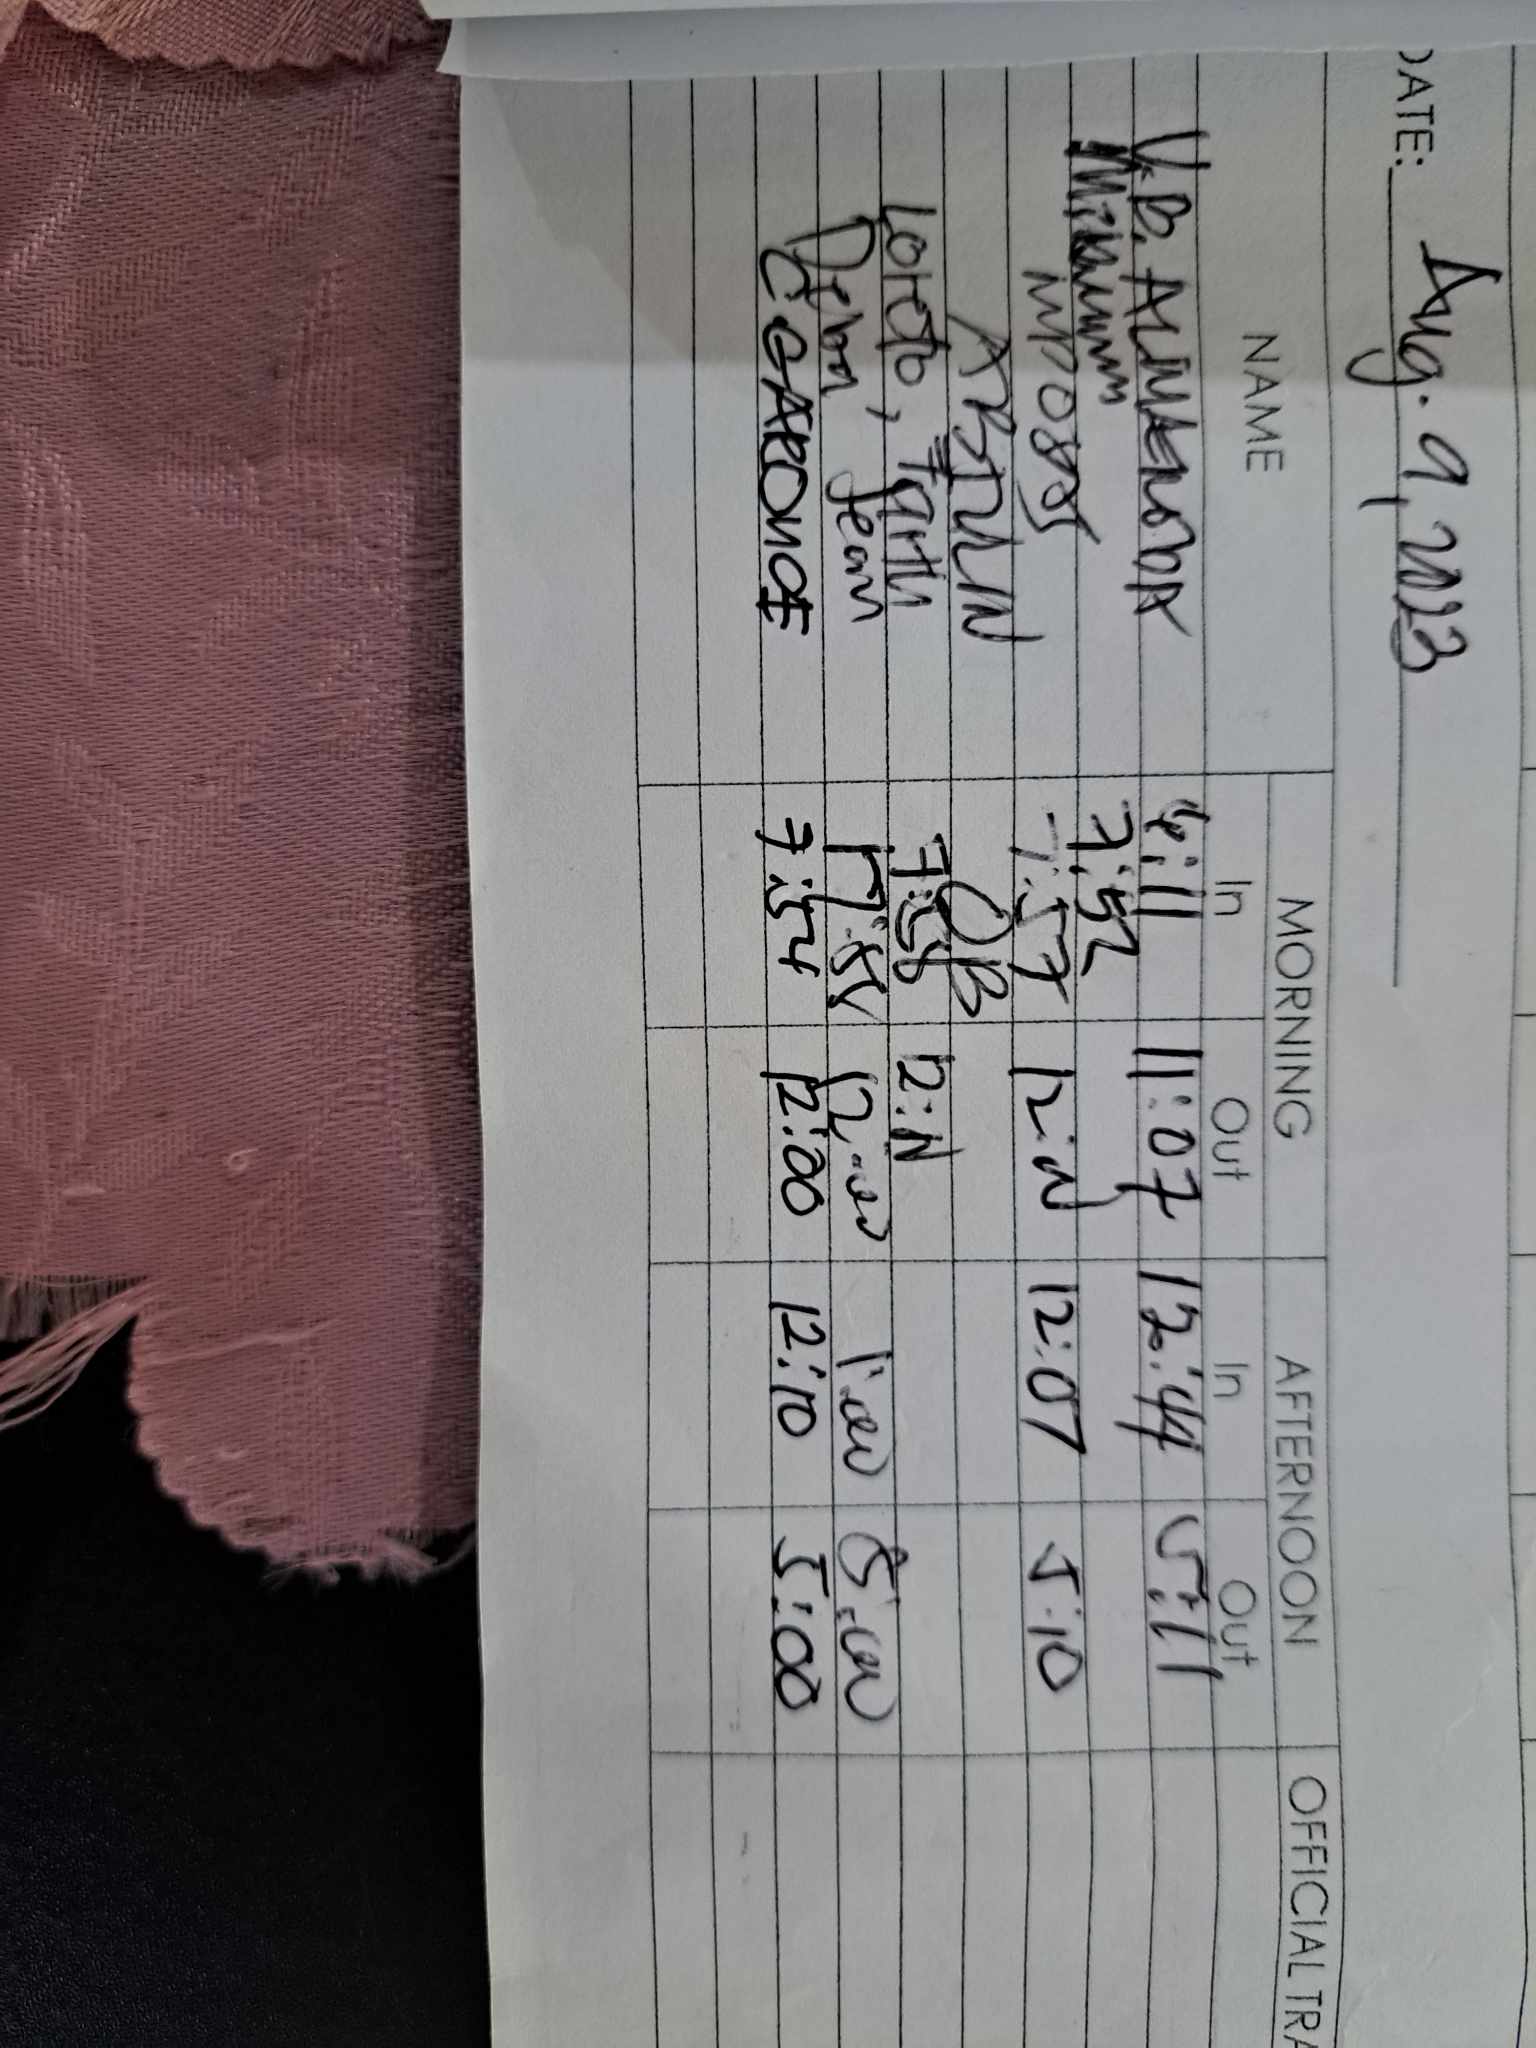 DATE: Aug. 9, 2023
NAME MORNING AFTERNOON OFFICIAL TRA
In Out In Out
V.B. 6:11 11:07 12:44 5:11
7:52
7:57 12:N 12:07 5:10
OB
Loreto, Faith 7:58 12:N
Jean 7:58 12:00 1:00 5:00
7:54 12:00 12:10 5:00